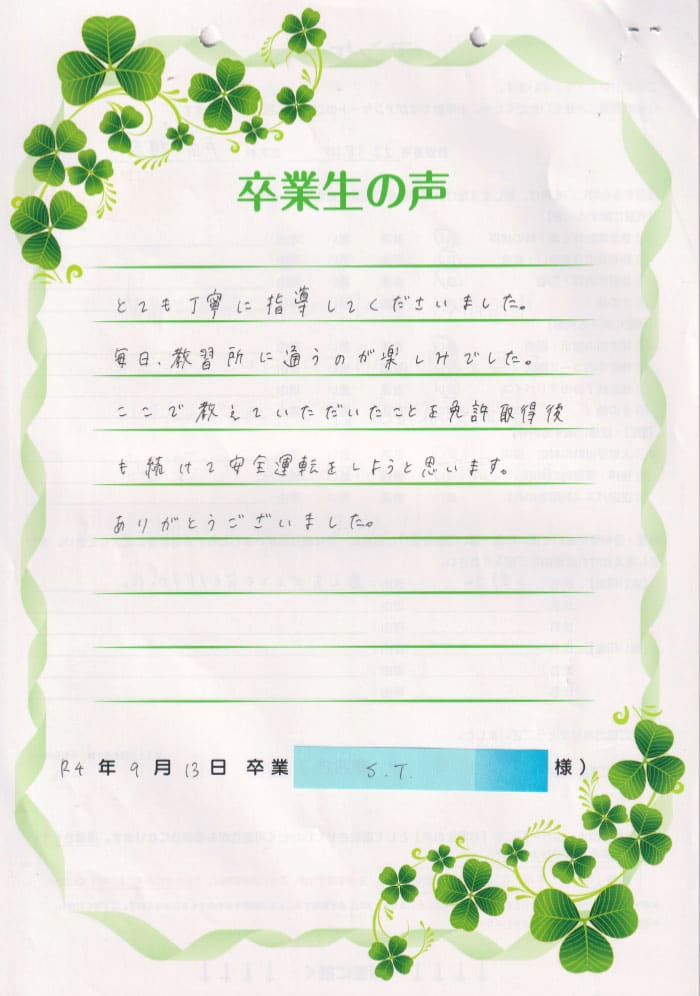 卒業生の声
とても丁寧に指導してくださいました。
毎日、教習所に通うのが楽しみでした。
ここで教えていただいたことを免許取得後
も続けて安全運転をしようと思います。
ありがとうございました。
R4年9月13日 卒業 S.T. 様)